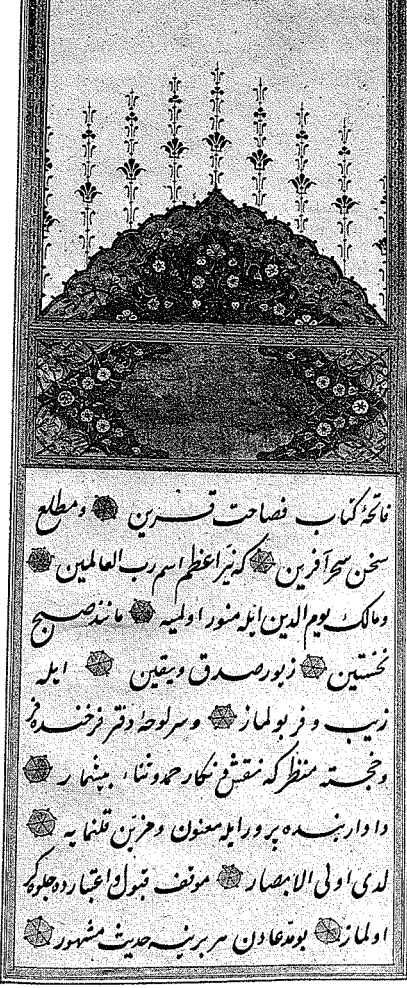 فاتحهٔ کتاب فصاحت قرین و مطلع
سخن سحر آفرین که نیر اعظم اسم رب العالمین
و مالک یوم الدین ایله منور اولمیه مانند صبح
نخستین زیور صدق و یقین ایله
زیب و فر بولماز و سرلوحهٔ دفتر فرخنده فر
و خجسته منظر که نقش و نکار حمد و ثناء بیشمار
دادار بنده پرور ایله معنون و مزین قلنمایه
لدی اولی الابصار موقف قبول و اعتبارده جلوه کر
اولماز بو مدعادن هر برینه حدیث مشهور